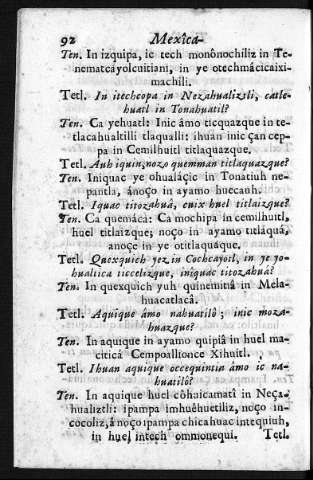 92 Mexica-
Ten. In izquipa, ic tech monônochiliz in Te-
nematcáyolcuitiani, in ye otechmácicaixi-
machili.
Tetl. In itechcopa in Nezahualiztli, catle-
huatl in Tonahuatil?
Ten. Ca yehuatl: Inic âmo ticquazque in te-
tlacahualtilli tlaqualli: ihuan inic çan cep-
pa in Cemilhuitl titlaquazque.
Tetl. Auh iquin, nozo quemman titlaquazque?
Ten. Iniquac ye ohualáçic in Tonatiuh ne-
pantla, ánoço in ayamo huecauh.
Tetl. Iquac titozahuâ, cuix huel titlaizque?
Ten. Ca quemáca: Ca mochipa in cemilhuitl,
huel titlaizque; noço in ayamo titláquâ,
anoçe in ye otitlaquáque.
Tetl. Quexquich yez in Cochcayotl, in ye yo-
hualtica ticcelizque, iniquac titozahuâ?
Ten. In quexquich yuh quinemitiâ in Mela-
huacatlacâ.
Tetl. Aquique âmo nahuatilô; inic moza-
huazque?
Ten. In aquique in ayamo quipiâ in huel ma-
citicâ Cempoallionce Xihuitl.
Tetl. Ihuan aquique occequintin âmo ic na-
huatilô?
Ten. In aquique huel côhuicamati in Neça-
hualiztli: ipampa imhuêhuetiliz, noço in-
cocoliz, á noço ipampa chicahuac intequiuh,
in huel intech ommonequi. Tetl.